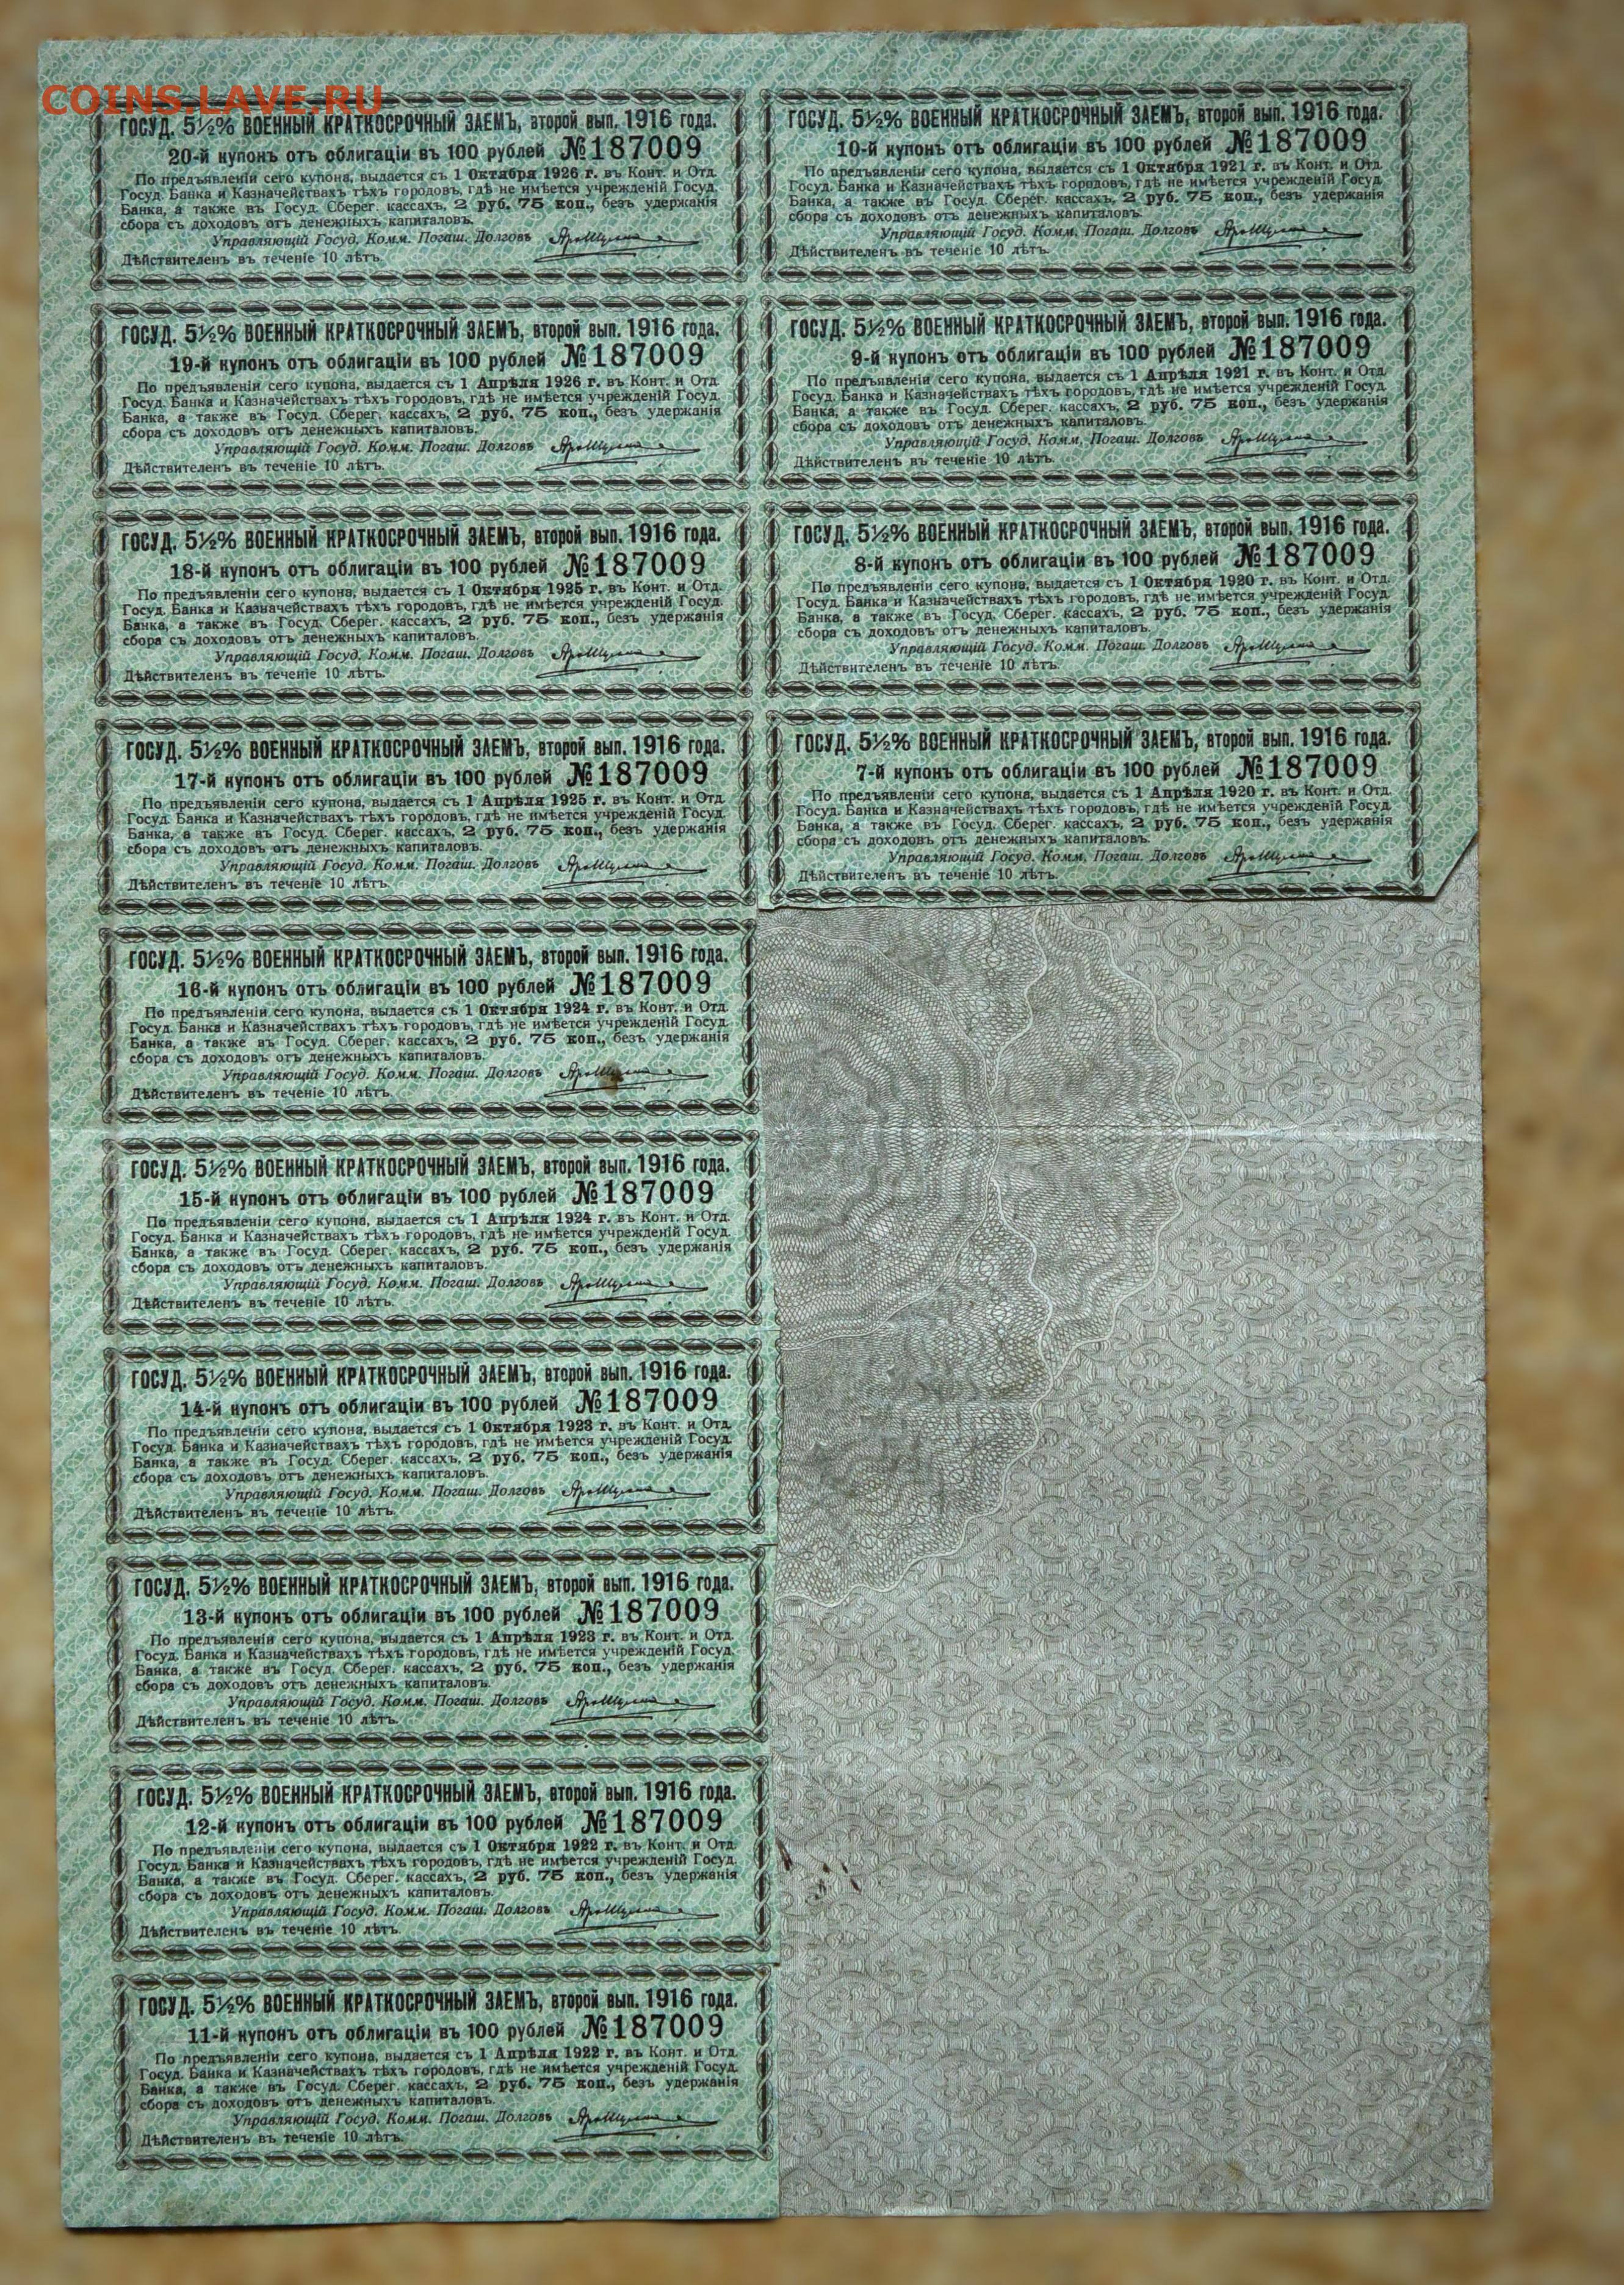 COINS.LAVE.RU
ГОСУД. 5½% ВОЕННЫЙ КРАТКОСРОЧНЫЙ ЗАЕМЪ, второй вып. 1916 года.
20-й купонъ отъ облигаціи въ 100 рублей №187009
По предъявленіи сего купона, выдается съ 1 Октября 1926 г. въ Конт. и Отд.
Госуд. Банка и Казначействахъ тѣхъ городовъ, гдѣ не имѣется учрежденій Госуд.
Банка, а также въ Госуд. Сберег. кассахъ, 2 руб. 75 коп., безъ удержанія
сбора съ доходовъ отъ денежныхъ капиталовъ.
Управляющій Госуд. Комм. Погаш. Долговъ
Дѣйствителенъ въ теченіе 10 лѣтъ.
ГОСУД. 5½% ВОЕННЫЙ КРАТКОСРОЧНЫЙ ЗАЕМЪ, второй вып. 1916 года.
19-й купонъ отъ облигаціи въ 100 рублей №187009
По предъявленіи сего купона, выдается съ 1 Апрѣля 1926 г. въ Конт. и Отд.
Госуд. Банка и Казначействахъ тѣхъ городовъ, гдѣ не имѣется учрежденій Госуд.
Банка, а также въ Госуд. Сберег. кассахъ, 2 руб. 75 коп., безъ удержанія
сбора съ доходовъ отъ денежныхъ капиталовъ.
Управляющій Госуд. Комм. Погаш. Долговъ
Дѣйствителенъ въ теченіе 10 лѣтъ.
ГОСУД. 5½% ВОЕННЫЙ КРАТКОСРОЧНЫЙ ЗАЕМЪ, второй вып. 1916 года.
18-й купонъ отъ облигаціи въ 100 рублей №187009
По предъявленіи сего купона, выдается съ 1 Октября 1925 г. въ Конт. и Отд.
Госуд. Банка и Казначействахъ тѣхъ городовъ, гдѣ не имѣется учрежденій Госуд.
Банка, а также въ Госуд. Сберег. кассахъ, 2 руб. 75 коп., безъ удержанія
сбора съ доходовъ отъ денежныхъ капиталовъ.
Управляющій Госуд. Комм. Погаш. Долговъ
Дѣйствителенъ въ теченіе 10 лѣтъ.
ГОСУД. 5½% ВОЕННЫЙ КРАТКОСРОЧНЫЙ ЗАЕМЪ, второй вып. 1916 года.
17-й купонъ отъ облигаціи въ 100 рублей №187009
По предъявленіи сего купона, выдается съ 1 Апрѣля 1925 г. въ Конт. и Отд.
Госуд. Банка и Казначействахъ тѣхъ городовъ, гдѣ не имѣется учрежденій Госуд.
Банка, а также въ Госуд. Сберег. кассахъ, 2 руб. 75 коп., безъ удержанія
сбора съ доходовъ отъ денежныхъ капиталовъ.
Управляющій Госуд. Комм. Погаш. Долговъ
Дѣйствителенъ въ теченіе 10 лѣтъ.
ГОСУД. 5½% ВОЕННЫЙ КРАТКОСРОЧНЫЙ ЗАЕМЪ, второй вып. 1916 года.
16-й купонъ отъ облигаціи въ 100 рублей №187009
По предъявленіи сего купона, выдается съ 1 Октября 1924 г. въ Конт. и Отд.
Госуд. Банка и Казначействахъ тѣхъ городовъ, гдѣ не имѣется учрежденій Госуд.
Банка, а также въ Госуд. Сберег. кассахъ, 2 руб. 75 коп., безъ удержанія
сбора съ доходовъ отъ денежныхъ капиталовъ.
Управляющій Госуд. Комм. Погаш. Долговъ
Дѣйствителенъ въ теченіе 10 лѣтъ.
ГОСУД. 5½% ВОЕННЫЙ КРАТКОСРОЧНЫЙ ЗАЕМЪ, второй вып. 1916 года.
15-й купонъ отъ облигаціи въ 100 рублей №187009
По предъявленіи сего купона, выдается съ 1 Апрѣля 1924 г. въ Конт. и Отд.
Госуд. Банка и Казначействахъ тѣхъ городовъ, гдѣ не имѣется учрежденій Госуд.
Банка, а также въ Госуд. Сберег. кассахъ, 2 руб. 75 коп., безъ удержанія
сбора съ доходовъ отъ денежныхъ капиталовъ.
Управляющій Госуд. Комм. Погаш. Долговъ
Дѣйствителенъ въ теченіе 10 лѣтъ.
ГОСУД. 5½% ВОЕННЫЙ КРАТКОСРОЧНЫЙ ЗАЕМЪ, второй вып. 1916 года.
14-й купонъ отъ облигаціи въ 100 рублей №187009
По предъявленіи сего купона, выдается съ 1 Октября 1923 г. въ Конт. и Отд.
Госуд. Банка и Казначействахъ тѣхъ городовъ, гдѣ не имѣется учрежденій Госуд.
Банка, а также въ Госуд. Сберег. кассахъ, 2 руб. 75 коп., безъ удержанія
сбора съ доходовъ отъ денежныхъ капиталовъ.
Управляющій Госуд. Комм. Погаш. Долговъ
Дѣйствителенъ въ теченіе 10 лѣтъ.
ГОСУД. 5½% ВОЕННЫЙ КРАТКОСРОЧНЫЙ ЗАЕМЪ, второй вып. 1916 года.
13-й купонъ отъ облигаціи въ 100 рублей №187009
По предъявленіи сего купона, выдается съ 1 Апрѣля 1923 г. въ Конт. и Отд.
Госуд. Банка и Казначействахъ тѣхъ городовъ, гдѣ не имѣется учрежденій Госуд.
Банка, а также въ Госуд. Сберег. кассахъ, 2 руб. 75 коп., безъ удержанія
сбора съ доходовъ отъ денежныхъ капиталовъ.
Управляющій Госуд. Комм. Погаш. Долговъ
Дѣйствителенъ въ теченіе 10 лѣтъ.
ГОСУД. 5½% ВОЕННЫЙ КРАТКОСРОЧНЫЙ ЗАЕМЪ, второй вып. 1916 года.
12-й купонъ отъ облигаціи въ 100 рублей №187009
По предъявленіи сего купона, выдается съ 1 Октября 1922 г. въ Конт. и Отд.
Госуд. Банка и Казначействахъ тѣхъ городовъ, гдѣ не имѣется учрежденій Госуд.
Банка, а также въ Госуд. Сберег. кассахъ, 2 руб. 75 коп., безъ удержанія
сбора съ доходовъ отъ денежныхъ капиталовъ.
Управляющій Госуд. Комм. Погаш. Долговъ
Дѣйствителенъ въ теченіе 10 лѣтъ.
ГОСУД. 5½% ВОЕННЫЙ КРАТКОСРОЧНЫЙ ЗАЕМЪ, второй вып. 1916 года.
11-й купонъ отъ облигаціи въ 100 рублей №187009
По предъявленіи сего купона, выдается съ 1 Апрѣля 1922 г. въ Конт. и Отд.
Госуд. Банка и Казначействахъ тѣхъ городовъ, гдѣ не имѣется учрежденій Госуд.
Банка, а также въ Госуд. Сберег. кассахъ, 2 руб. 75 коп., безъ удержанія
сбора съ доходовъ отъ денежныхъ капиталовъ.
Управляющій Госуд. Комм. Погаш. Долговъ
Дѣйствителенъ въ теченіе 10 лѣтъ.
ГОСУД. 5½% ВОЕННЫЙ КРАТКОСРОЧНЫЙ ЗАЕМЪ, второй вып. 1916 года.
10-й купонъ отъ облигаціи въ 100 рублей №187009
По предъявленіи сего купона, выдается съ 1 Октября 1921 г. въ Конт. и Отд.
Госуд. Банка и Казначействахъ тѣхъ городовъ, гдѣ не имѣется учрежденій Госуд.
Банка, а также въ Госуд. Сберег. кассахъ, 2 руб. 75 коп., безъ удержанія
сбора съ доходовъ отъ денежныхъ капиталовъ.
Управляющій Госуд. Комм. Погаш. Долговъ
Дѣйствителенъ въ теченіе 10 лѣтъ.
ГОСУД. 5½% ВОЕННЫЙ КРАТКОСРОЧНЫЙ ЗАЕМЪ, второй вып. 1916 года.
9-й купонъ отъ облигаціи въ 100 рублей №187009
По предъявленіи сего купона, выдается съ 1 Апрѣля 1921 г. въ Конт. и Отд.
Госуд. Банка и Казначействахъ тѣхъ городовъ, гдѣ не имѣется учрежденій Госуд.
Банка, а также въ Госуд. Сберег. кассахъ, 2 руб. 75 коп., безъ удержанія
сбора съ доходовъ отъ денежныхъ капиталовъ.
Управляющій Госуд. Комм. Погаш. Долговъ
Дѣйствителенъ въ теченіе 10 лѣтъ.
ГОСУД. 5½% ВОЕННЫЙ КРАТКОСРОЧНЫЙ ЗАЕМЪ, второй вып. 1916 года.
8-й купонъ отъ облигаціи въ 100 рублей №187009
По предъявленіи сего купона, выдается съ 1 Октября 1920 г. въ Конт. и Отд.
Госуд. Банка и Казначействахъ тѣхъ городовъ, гдѣ не имѣется учрежденій Госуд.
Банка, а также въ Госуд. Сберег. кассахъ, 2 руб. 75 коп., безъ удержанія
сбора съ доходовъ отъ денежныхъ капиталовъ.
Управляющій Госуд. Комм. Погаш. Долговъ
Дѣйствителенъ въ теченіе 10 лѣтъ.
ГОСУД. 5½% ВОЕННЫЙ КРАТКОСРОЧНЫЙ ЗАЕМЪ, второй вып. 1916 года.
7-й купонъ отъ облигаціи въ 100 рублей №187009
По предъявленіи сего купона, выдается съ 1 Апрѣля 1920 г. въ Конт. и Отд.
Госуд. Банка и Казначействахъ тѣхъ городовъ, гдѣ не имѣется учрежденій Госуд.
Банка, а также въ Госуд. Сберег. кассахъ, 2 руб. 75 коп., безъ удержанія
сбора съ доходовъ отъ денежныхъ капиталовъ.
Управляющій Госуд. Комм. Погаш. Долговъ
Дѣйствителенъ въ теченіе 10 лѣтъ.